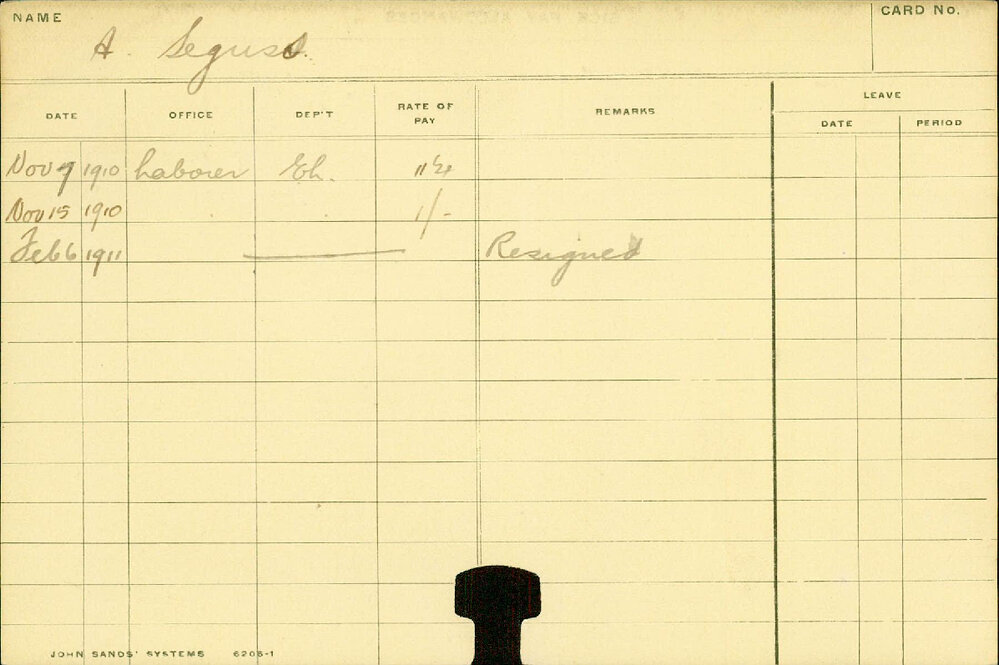 NAME
CARD No.
A.
DATE OFFICE DEP'T RATE OF PAY REMARKS LEAVE
DATE PERIOD
Nov 7 1910 Laborer Eh.
Nov 15 1910 1/-
Feb 6 1911 Resigned
JOHN SANDS' SYSTEMS 6206-1